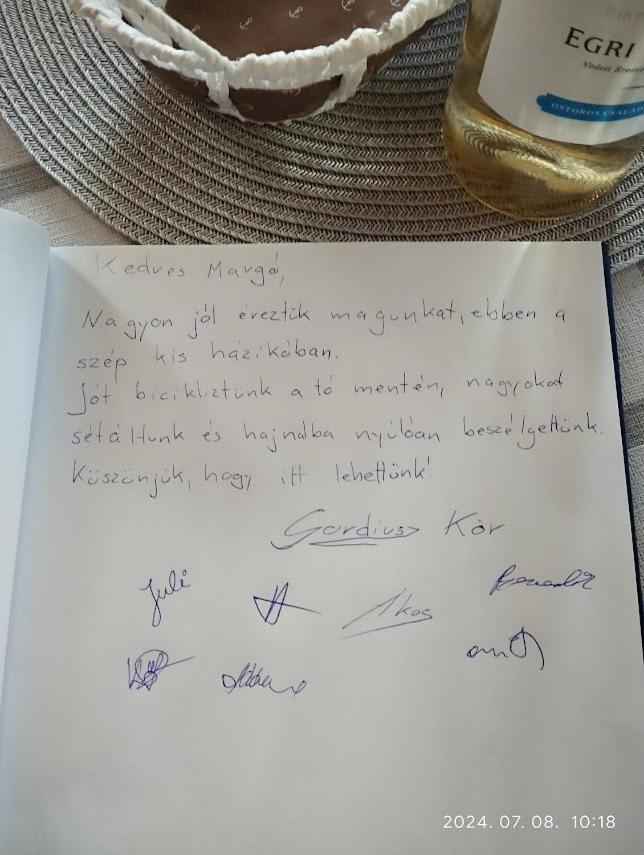 EGRI
Védett Eredet
OSTOROS CSALÁD
Kedves Margó,
Nagyon jól éreztük magunkat, ebben a
szép kis házikóban.
Jót bicikliztünk a tó mentén, nagyokat
sétáltunk és hajnalba nyúlóan beszélgettünk.
Köszönjük, hogy itt lehettünk!
Gordiusz Kör
Juli
Ákos
2024. 07. 08. 10:18